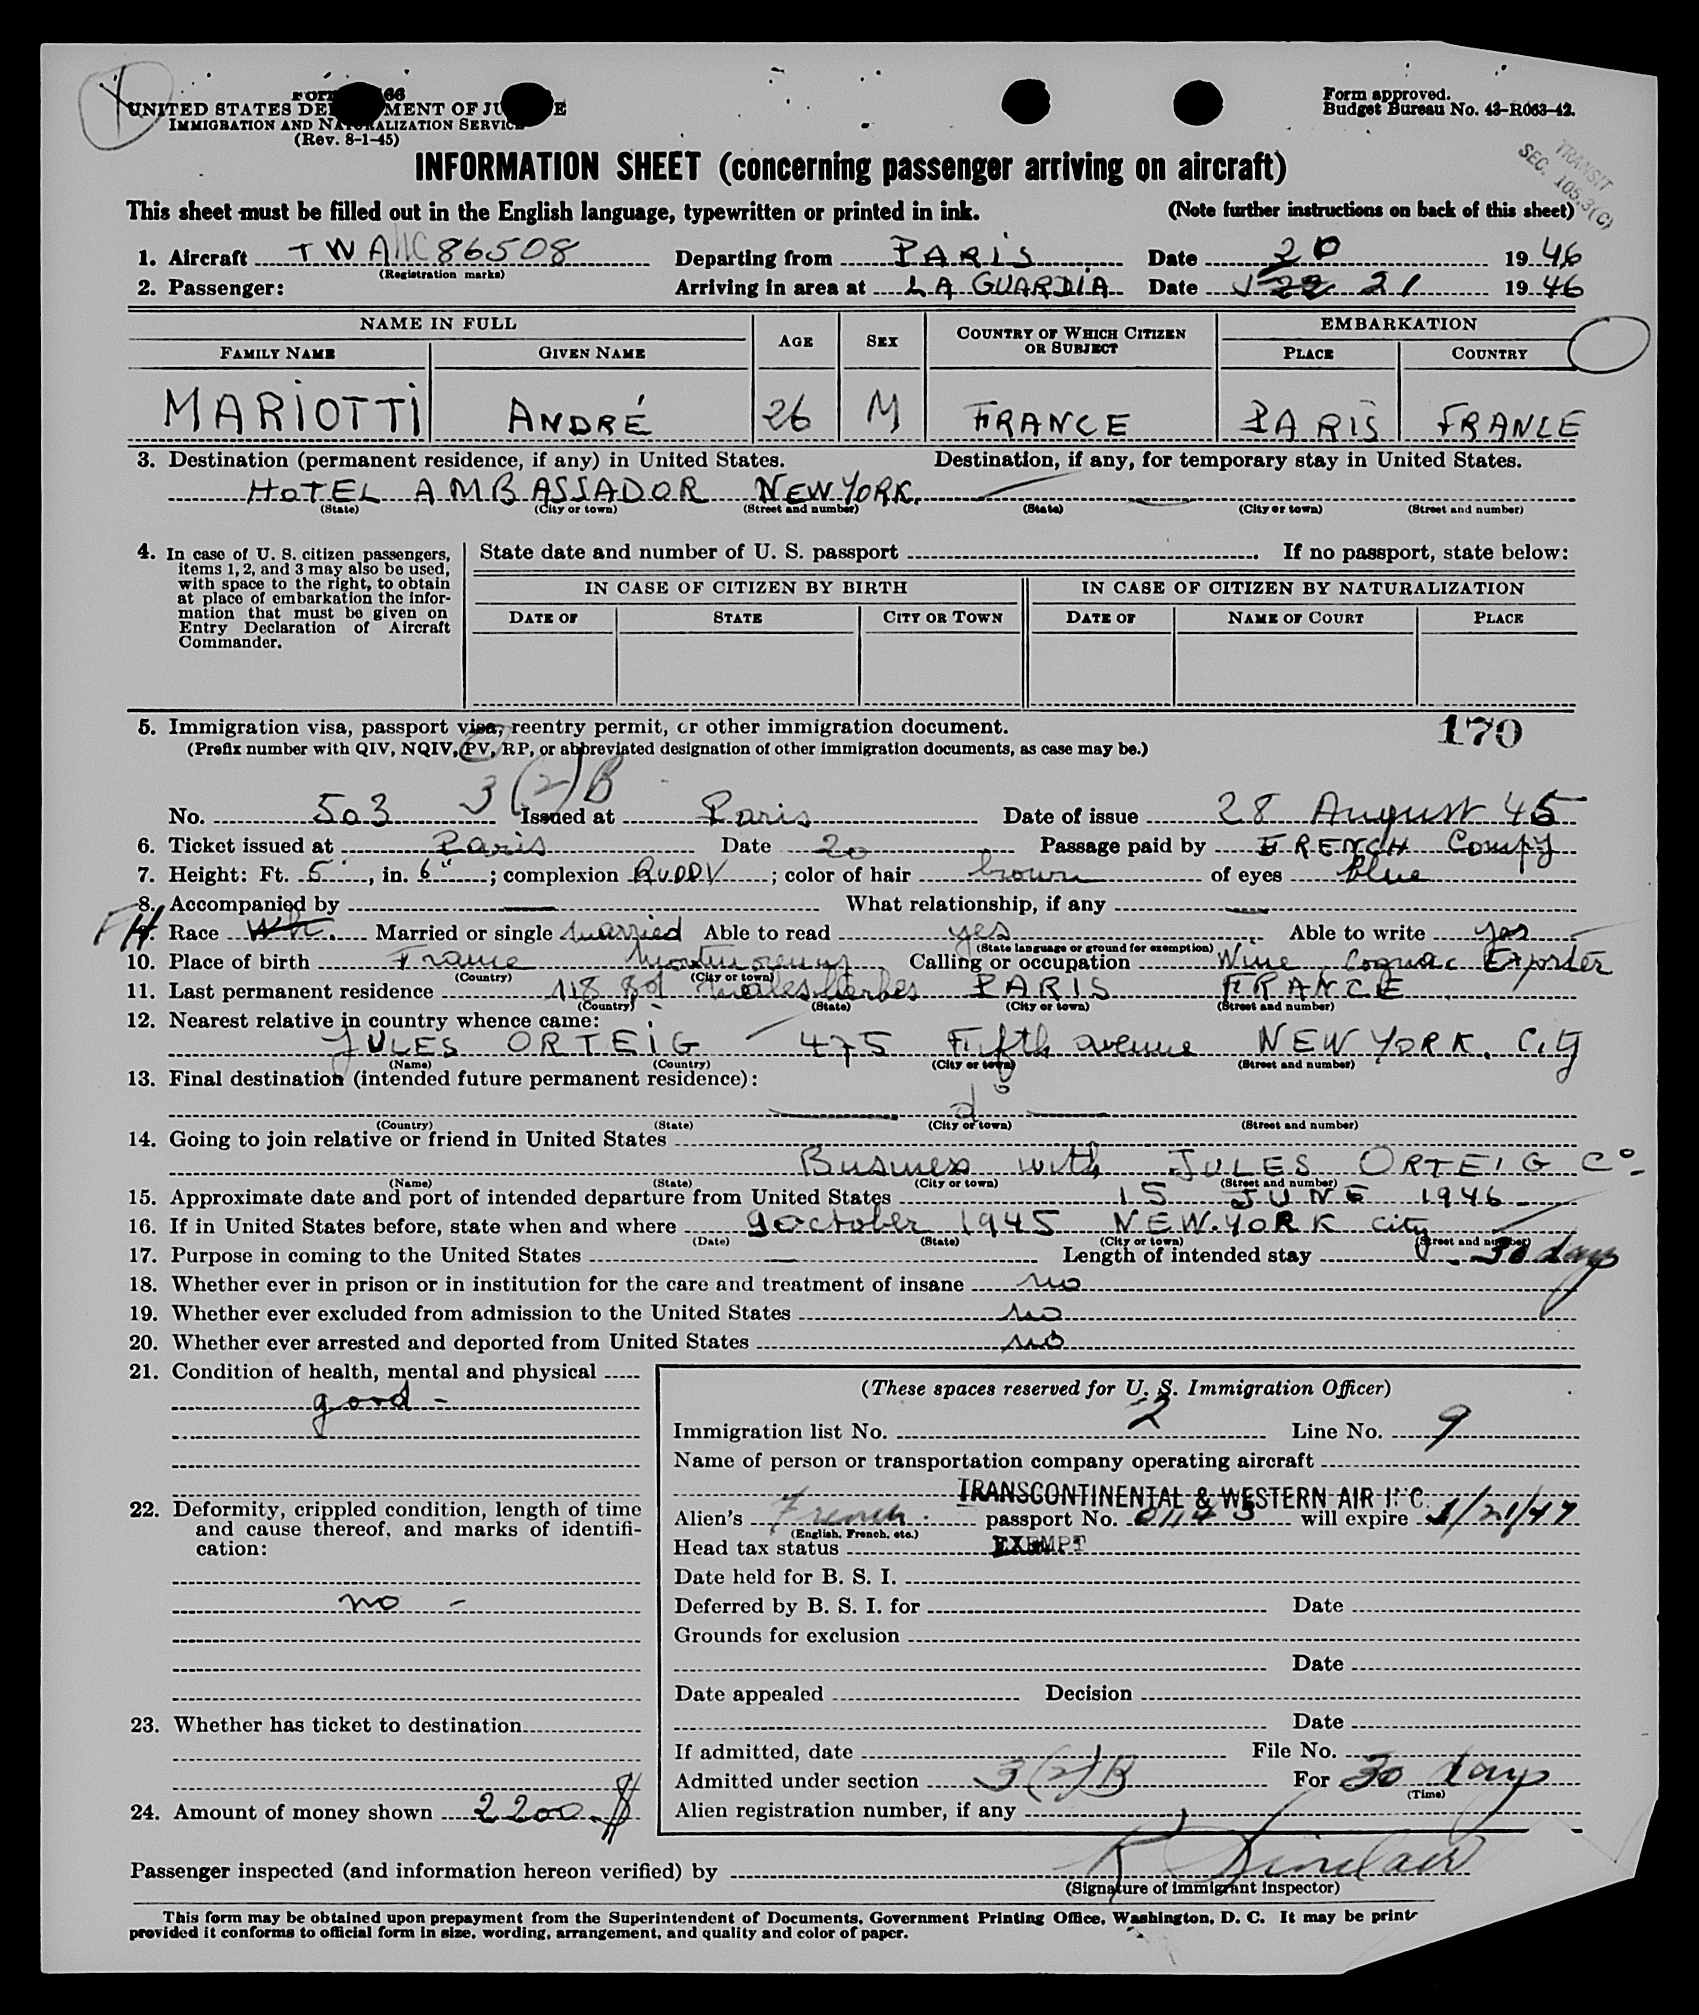 UNITED STATES DE MENT OF JU E
IMMIGRATION AND NATURALIZATION SERVICE
(Rev. 8-1-45)
Form approved.
Budget Bureau No. 43-R063-42.
INFORMATION SHEET (concerning passenger arriving on aircraft)
TRANSIT
SEC. 105.3(C)
This sheet must be filled out in the English language, typewritten or printed in ink. (Note further instructions on back of this sheet)
1. Aircraft TWA NC 86508 Departing from PARiS Date 20 1946
(Registration marks)
2. Passenger: Arriving in area at LA GUARDiA Date 21 1946
NAME IN FULL EMBARKATION
FAMILY NAME GIVEN NAME AGE SEX COUNTRY OF WHICH CITIZEN OR SUBJECT PLACE COUNTRY
MARiOTTi ANDRÉ 26 M FRANCE PARiS FRANCE
3. Destination (permanent residence, if any) in United States. Destination, if any, for temporary stay in United States.
HOTEL AMBASSADOR NEW YORK.
(State) (City or town) (Street and number) (State) (City or town) (Street and number)
4. In case of U. S. citizen passengers, items 1, 2, and 3 may also be used, with space to the right, to obtain at place of embarkation the information that must be given on Entry Declaration of Aircraft Commander.
State date and number of U. S. passport . If no passport, state below:
IN CASE OF CITIZEN BY BIRTH IN CASE OF CITIZEN BY NATURALIZATION
DATE OF STATE CITY OR TOWN DATE OF NAME OF COURT PLACE
5. Immigration visa, passport visa, reentry permit, or other immigration document. 170
(Prefix number with QIV, NQIV, PV, RP, or abbreviated designation of other immigration documents, as case may be.)
3(2)B
No. 503 Issued at Paris Date of issue 28 August 45
6. Ticket issued at Paris Date 20 Passage paid by FRENCH Compy
7. Height: Ft. 5', in. 6"; complexion RUDDY; color of hair brown of eyes blue
8. Accompanied by — What relationship, if any —
Race Wh. Married or single married Able to read yes Able to write yes
(State language or ground for exemption)
10. Place of birth France Montmorency Calling or occupation Wine Cognac Exporter
(Country) (City or town)
11. Last permanent residence 118 Bd Malesherbes PARiS FRANCE
(Country) (State) (City or town) (Street and number)
12. Nearest relative in country whence came:
JULES ORTEiG 475 Fifth avenue NEW YORK. City
(Name) (Country) (City or town) (Street and number)
13. Final destination (intended future permanent residence):
— d° —
(Country) (State) (City or town) (Street and number)
14. Going to join relative or friend in United States
Business with JULES ORTEiG C°
(Name) (State) (City or town) (Street and number)
15. Approximate date and port of intended departure from United States 15 JUNE 1946
16. If in United States before, state when and where 9 october 1945 NEW.YORK City
(Date) (State) (City or town) (Street and number)
17. Purpose in coming to the United States — Length of intended stay 30 days
18. Whether ever in prison or in institution for the care and treatment of insane no
19. Whether ever excluded from admission to the United States no
20. Whether ever arrested and deported from United States no
21. Condition of health, mental and physical
good -
22. Deformity, crippled condition, length of time and cause thereof, and marks of identification:
no -
23. Whether has ticket to destination
24. Amount of money shown 2200.$
(These spaces reserved for U. S. Immigration Officer)
Immigration list No. 2 Line No. 9
Name of person or transportation company operating aircraft
TRANSCONTINENTAL & WESTERN AIR INC.
Alien's French passport No. will expire 1/21/47
(English, French, etc.)
Head tax status EXEMPT
Date held for B. S. I.
Deferred by B. S. I. for Date
Grounds for exclusion
Date
Date appealed Decision
Date
If admitted, date File No.
Admitted under section 3(2)B For 30 days
(Time)
Alien registration number, if any
Passenger inspected (and information hereon verified) by R Sinclair
(Signature of immigrant inspector)
This form may be obtained upon prepayment from the Superintendent of Documents, Government Printing Office, Washington, D. C. It may be
provided it conforms to official form in size, wording, arrangement, and quality and color of paper.